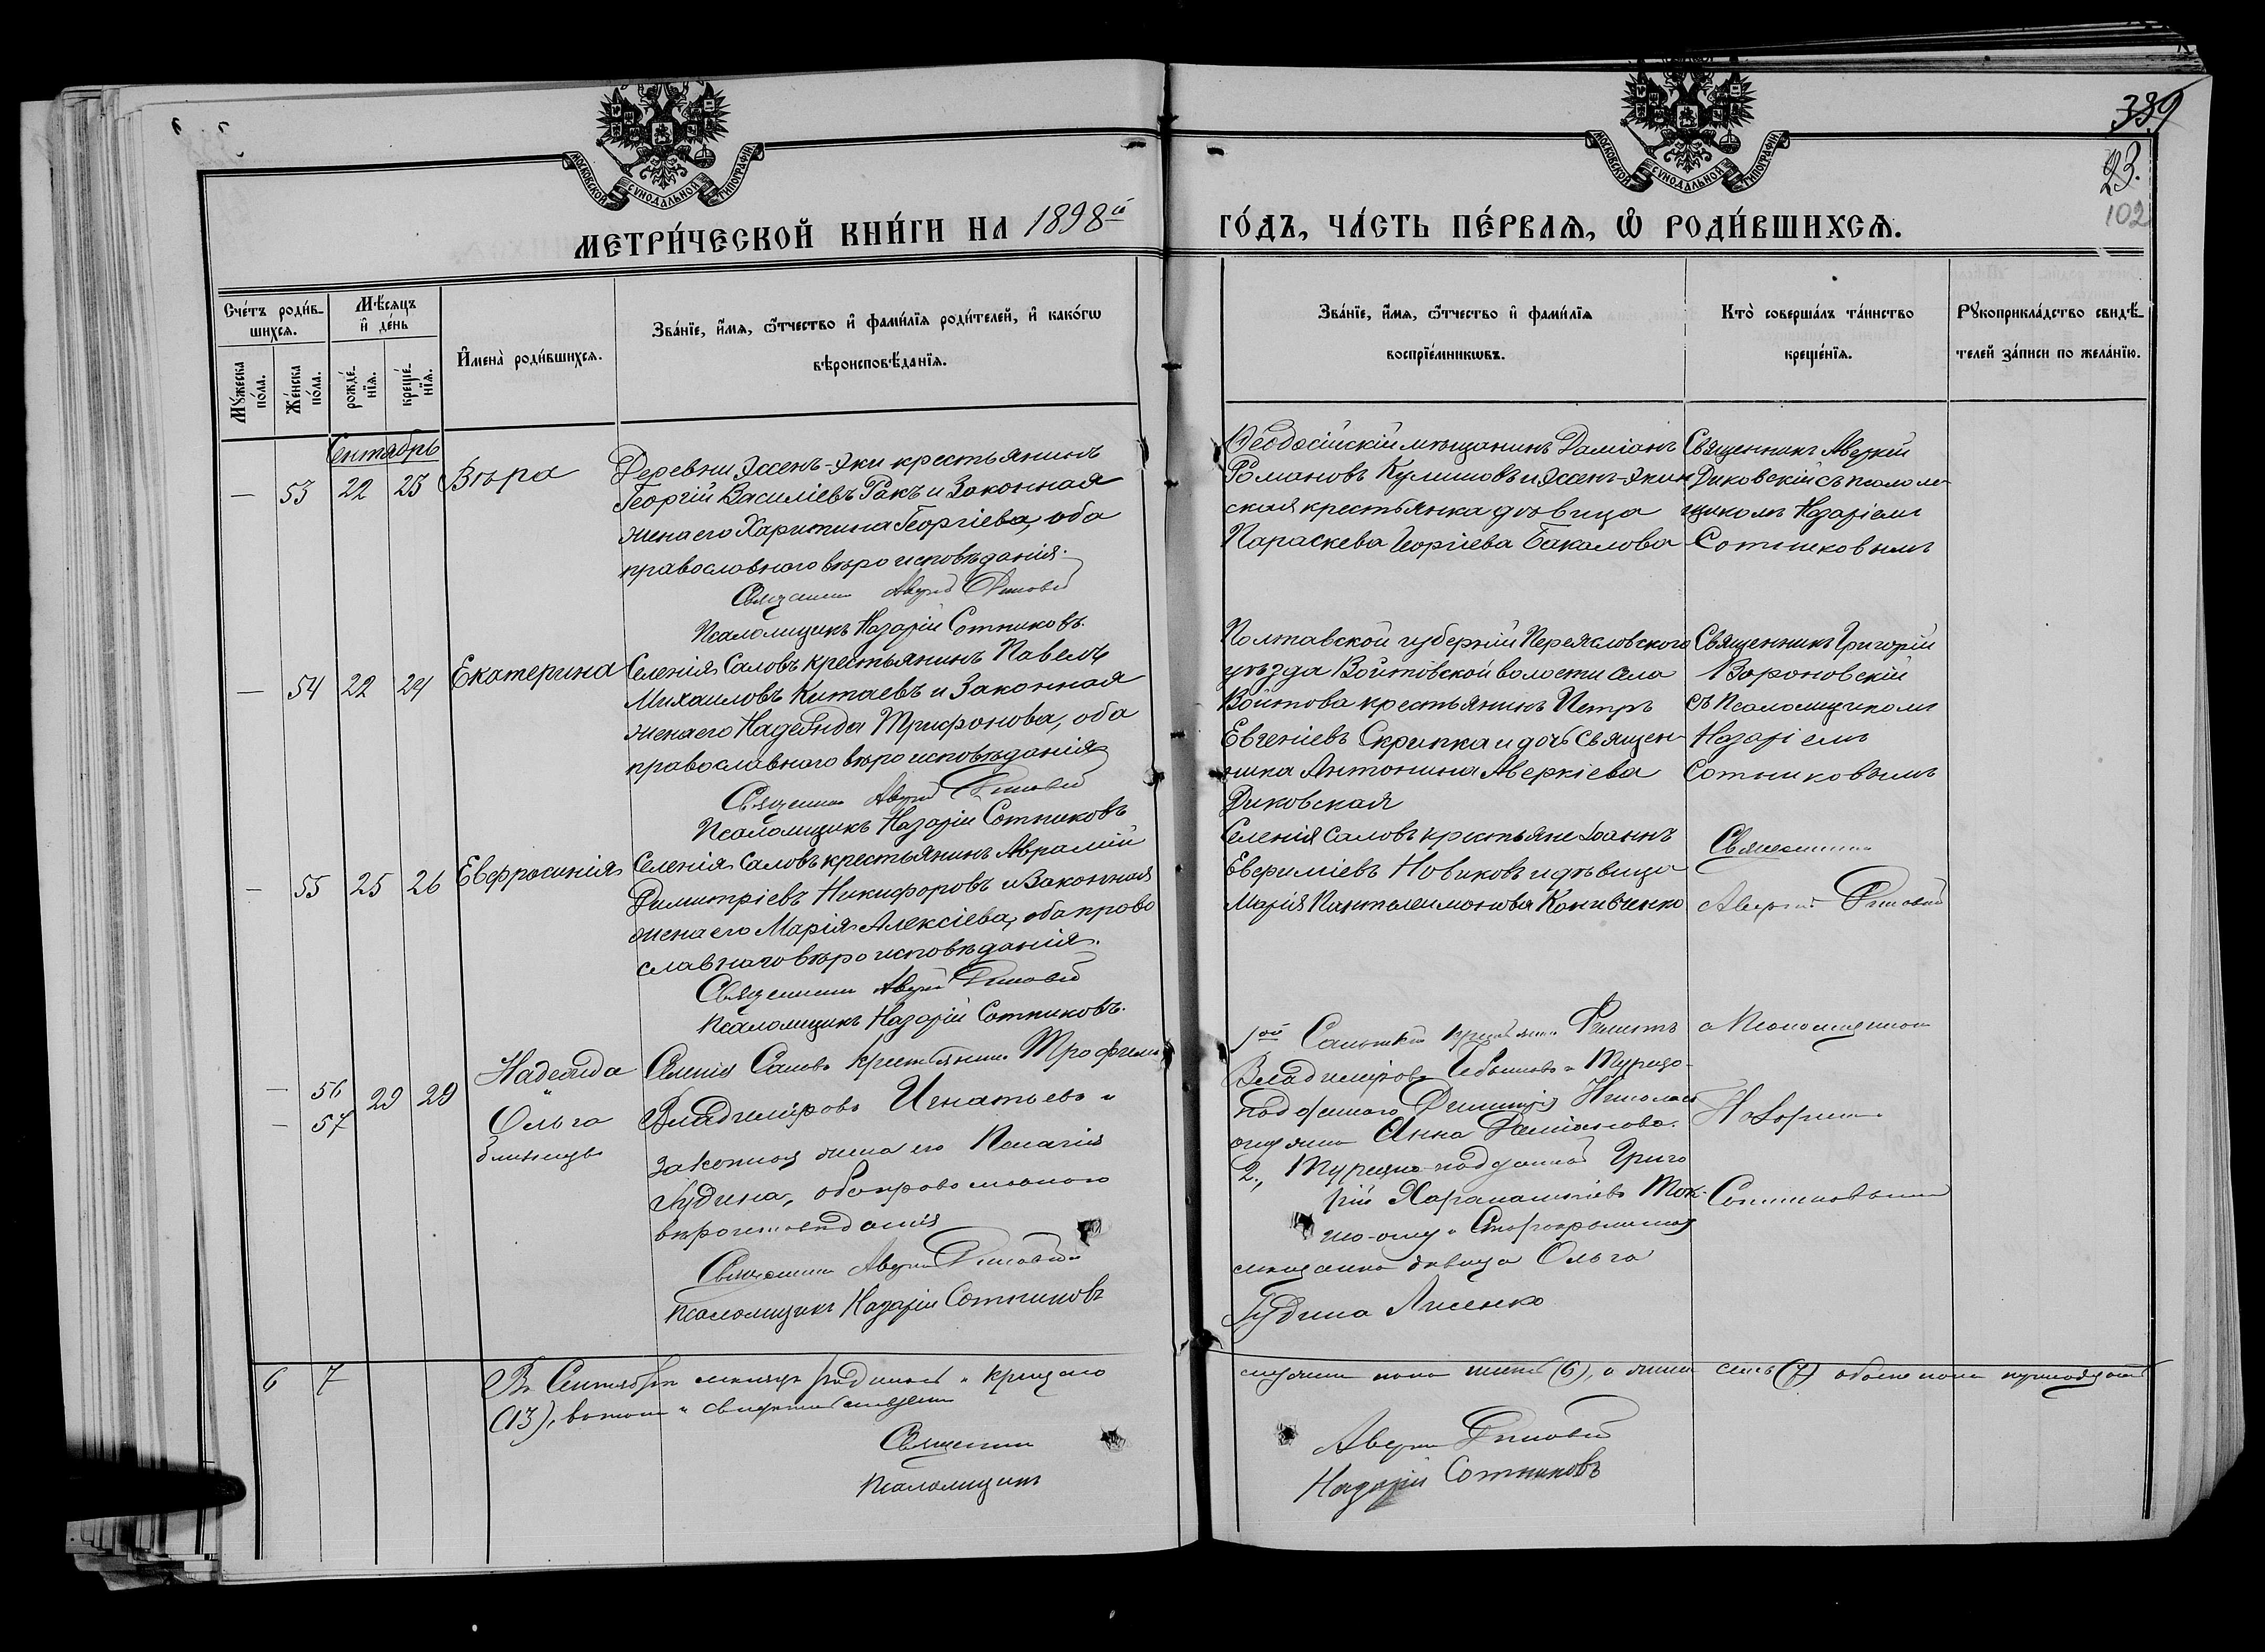 339
23.
102
МОСКОВСКОЙ СѴНОДАЛЬНОЙ ТИПОГРАФІИ
МОСКОВСКОЙ СѴНОДАЛЬНОЙ ТИПОГРАФІИ
МЕТРИ́ЧЕСКОЙ КНИ́ГИ НА 1898й ГО́ДЪ, ЧА́СТЬ ПЕ́РВАѦ, Ѽ РОДИ́ВШИХСѦ.
Сче́тъ роди́в-
шихсѧ.
Мꙋ́жеска
по́ла.
Же́нска
по́ла.
Мѣ́сѧцъ
и҆ де́нь
рожде́-
нїѧ.
креще́-
нїѧ.
И҆мена̀ роди́вшихсѧ.
Зва́нїе, и҆́мѧ, ѻ҆́тчество и҆ фами́лїѧ роди́телей, и҆ како́гѡ
вѣроисповѣ́данїѧ.
Зва́нїе, и҆́мѧ, ѻ҆́тчество и҆ фами́лїѧ
воспрїе́мникѡвъ.
Кто̀ соверша́лъ та́инство
креще́нїѧ.
Рꙋкоприкла́дство свидѣ́-
телей за́писи по жела́нїю.
Сентябрь
— 53 22 23 Вѣра
Деревни Эссенъ-Эки крестьянинъ
Георгій Василіевъ Ракъ и законная
жена его Харитина Георгіева, оба
православнаго вѣроисповѣданія.
Священникъ Аверкій Диковскій
Псаломщикъ Назарій Сотниковъ.
Ѳеодосійскій мѣщанинъ Даміанъ
Романовъ Кулишовъ и Эссенъ-Экин
ская крестьянка дѣвица
Параскева Георгіева Бакалова
Священникъ Аверкій
Диковскій съ псалом
щикомъ Назаріемъ
Сотниковымъ
— 54 22 24 Екатерина
Селенія Саловъ крестьянинъ Павелъ
Михаиловъ Китаевъ и законная
жена его Надежда Трифонова, оба
православнаго вѣроисповѣданія
Священникъ Аверкій Диковскій
Псаломщикъ Назарій Сотниковъ
Полтавской губерніи Переясловского
уѣзда Войтовской волости села
Войтова крестьянинъ Петръ
Евгеніевъ Скрипка и дочь священ
ника Антонина Аверкіева
Диковская
Священникъ Григорій
Вороновскій
съ Псаломщикомъ
Назаріемъ
Сотниковымъ
— 55 25 26 Евфросинія
Селенія Саловъ крестьянинъ Аврамій
Димитріевъ Никифоровъ и законная
жена его Марія Алексіева, оба право
славнаго вѣроисповѣданія.
Священникъ Аверкій Диковскій
Псаломщикъ Назарій Сотниковъ.
Селенія Саловъ крестьяне Іоаннъ
Евфиміевъ Новиковъ и дѣвица
Марія Пантелеимонова Конивченко
Священникъ
Аверкій Диковскій
— 56 29 29 Надежда
— 57 Ольга
близнецы
Селенія Саловъ крестьянинъ Трофимъ
Владиміровъ Игнатьевъ и
законная жена его Пелагія
Іудина, оба православнаго
вѣроисповѣданія
Священникъ Аверкій Диковскій
Псаломщикъ Назарій Сотниковъ
1ой
Владиміровъ и Турецко-
подданного Димитрія
Анна Даміанова.
2., Турецко-подданный Григо
рій Харалампіевъ
мѣщанка дѣвица Ольга
Іудина Лисенко
с Псаломщикомъ
Назаріемъ
Сотниковымъ
6 7 Въ Сентябрѣ мѣсяцѣ родилось и крещено мужеска пола шесть (6), а женска семь (7) обоего пола тринадцать
(13), въ томъ и свидѣтельствуемъ
Священникъ Аверкій Диковскій
Псаломщикъ Назарій Сотниковъ